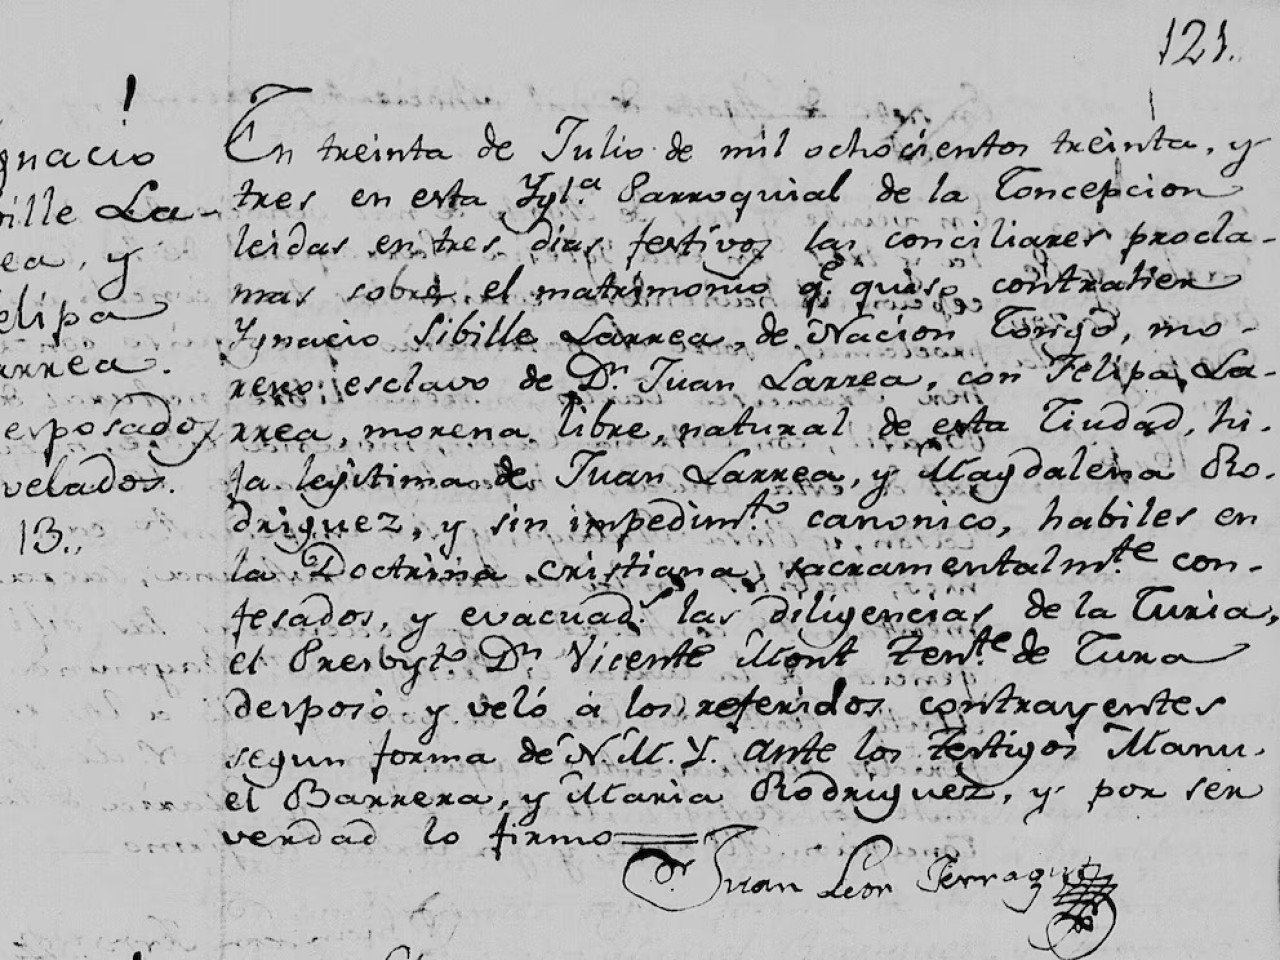 121.
En treinta de Julio de mil ochocientos treinta, y
tres en esta Ygl.a Parroquial de la Concepcion
leidas en tres dias festivos las conciliares procla-
mas sobre el matrimonio q.e quiso contraher
Ygnacio Sibille Larrea, de Nacion Congo, mo-
reno esclavo de D.n Juan Larrea, con Felipa La-
rrea, morena libre, natural de esta Ciudad, hi-
ja legitima de Juan Larrea, y Magdalena Ro-
driguez, y sin impedim.to canonico, habiles en
la Doctrina cristiana, sacramentalm.te con-
fesados, y evacuad.s las diligencias de la Curia,
el Presbyt.o D.n Vicente Mont Ten.te de Cura
desposó y veló á los referidos contrayentes
segun forma de N. M. Y. ante los testigos Manu-
el Barrera, y Maria Rodriguez, y por ser
verdad lo firmo
D.r Juan Leon Ferragut
gnacio
ille La-
ea, y
elipa
rrea.
esposados
velados.
13.